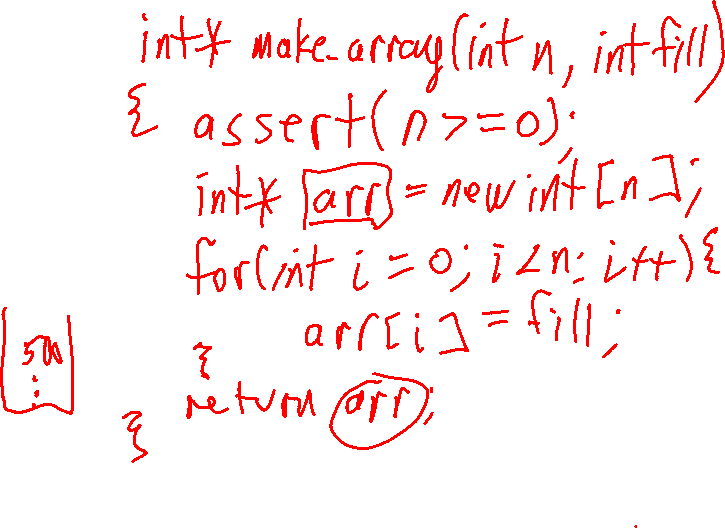 int* make_array(int n, int fill)
{ assert(n>=0);
int* arr = new int[n];
for(int i = 0; i<n; i++){
arr[i] = fill;
}
return arr;
}
500
: